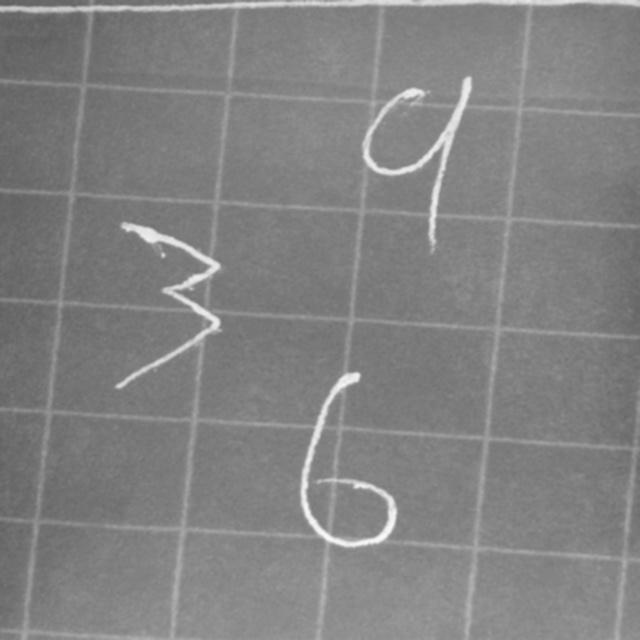 9
3
6